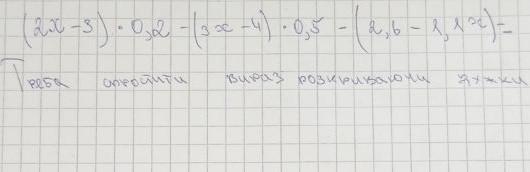 (2x-3)·0,2-(3x-4)·0,5-(2,6-1,1x)=
Треба спростити вираз розкриваючи дужки